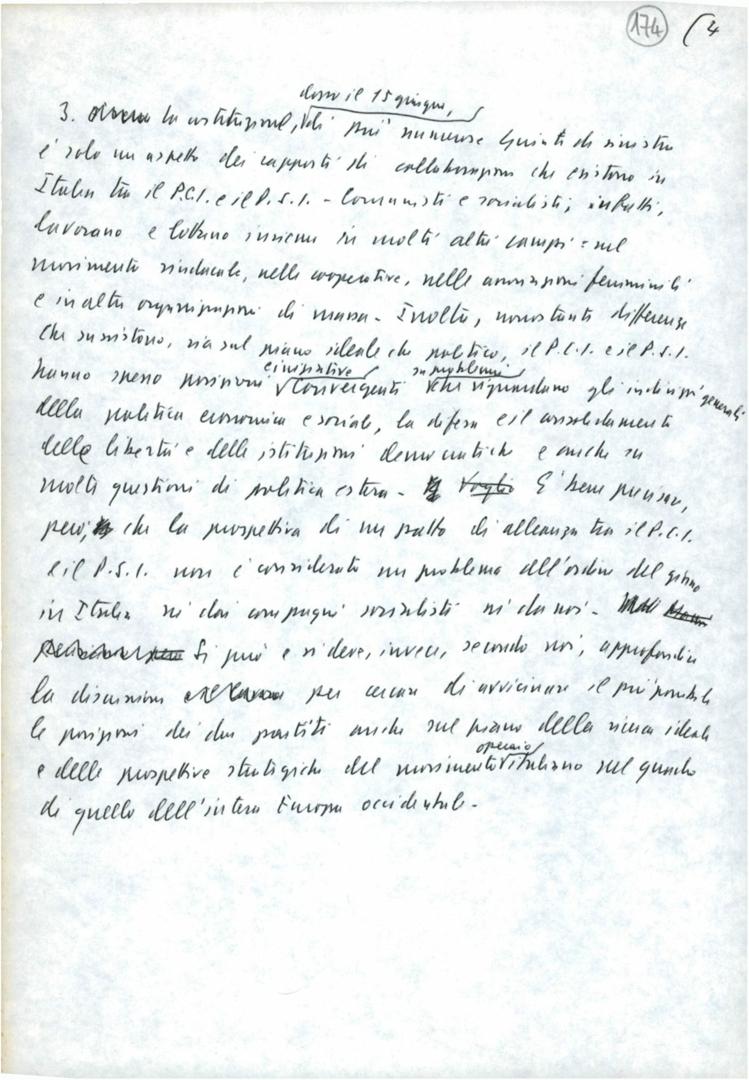 174 4
dopo il 15 giugno,
3. La costituzione, di più numerose Giunte di sinistra
è solo un aspetto dei rapporti di collaborazione che esistono in
Italia tra il P.C.I. e il P.S.I. - Comunisti e socialisti, infatti,
lavorano e lottano insieme in molti altri campi: nel
movimento sindacale, nelle cooperative, nelle associazioni femminili
e in altre organizzazioni di massa - Inoltre, nonostante differenze
che sussistono, sia sul piano ideale che politico, il P.C.I. e il P.S.I.
e iniziative su problemi
hanno spesso posizioni convergenti che riguardano gli indirizzi generali
della politica economica e sociale, la difesa e il consolidamento
delle libertà e delle istituzioni democratiche e anche su
molte questioni di politica estera - Voglio E' bene precisare,
però, che la prospettiva di un patto di alleanza tra il P.C.I.
e il P.S.I. non è considerato un problema all'ordine del giorno
in Italia né dai compagni socialisti né da noi -
Si può e si deve, invece, secondo noi, approfondire
la discussione per cercare di avvicinare il più possibile
le posizioni dei due partiti anche sul piano della ricerca ideale
operaio
e delle prospettive strategiche del movimento italiano nel quadro
di quello dell'intera Europa occidentale -